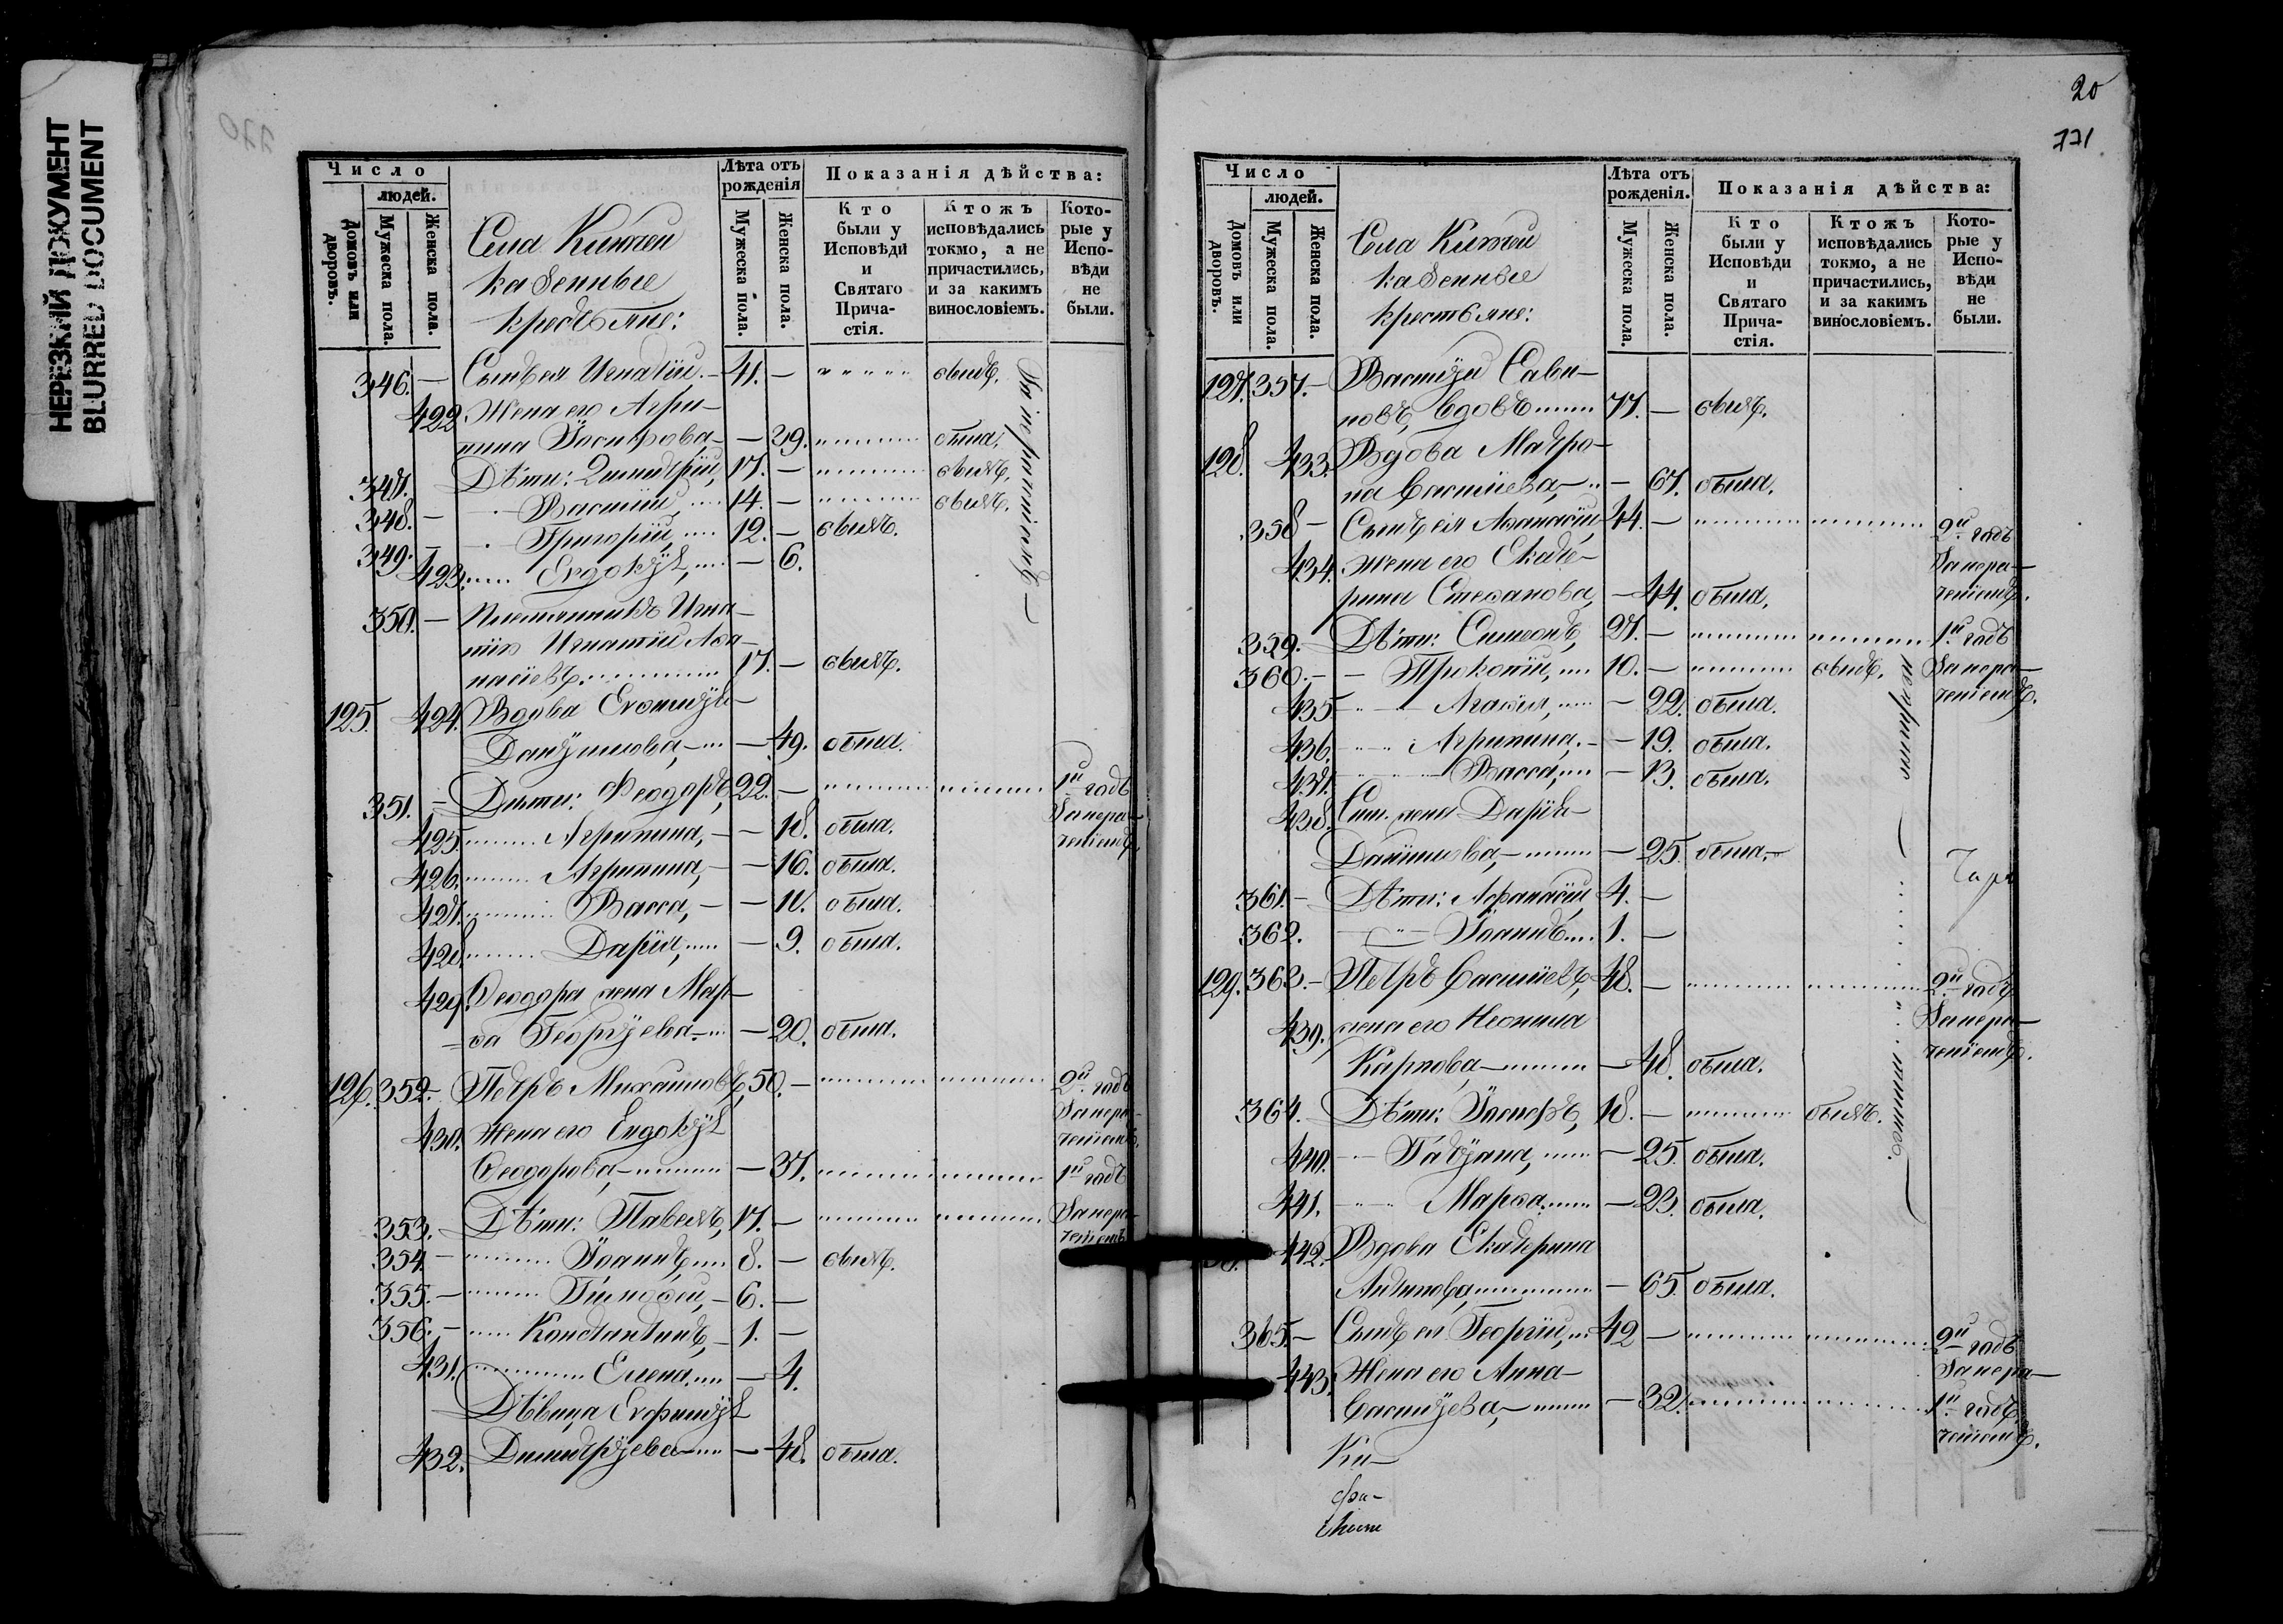 НЕРЕЗКИЙ ДОКУМЕНТ
BLURRED DOCUMENT
Число
людей.
Домовъ или дворовъ.
Мужеска пола.
Женска пола.
Села
казенные
крестьяне:
Лѣта отъ рожденія
Мужеска пола.
Женска пола.
Показанія дѣйства:
Кто были у Исповѣди и Святаго Причастія.
Ктожъ исповѣдались токмо, а не причастились, и за какимъ винословіемъ.
Которые у Исповѣди не были.
346. — Сынъ ея Игнатій. — 41. — былъ.
422. Жена его Агри—
пина Іосифова, — 29. была.
347. Дѣти: Димитрій, 17. — былъ.
348. — Василій, 14. — былъ.
349. — Григорій, 12. — былъ.
423. Евдокія, — 6.
350. — Племянникъ Игна—
тія Игнатій Аѳа—
насіевъ. 17. — былъ.
125. 424. Вдова Евѳимія
Даніилова, — 49. была.
351. — Дѣти: Феодоръ, 22. — 1й годъ
425. Агрипина, — 18. была.
426. Агрипина, — 16. была.
427. Васса, — 11. была.
428. Дарія, — 9. была.
429. Феодора жена Мар—
ѳа Георгіева — 20. была.
126. 352. — Петръ Михаиловъ, 50. — 2й годъ
430. Жена его Евдокія
Феодорова, — 37. 1й годъ
353. — Дѣти: Павелъ, 17. —
354. — Іоаннъ 8. — былъ.
355. — Тимоѳей, — 6. —
356. — Константинъ, — 1. —
431. Елена — 4.
Дѣвица Евфимія
432. Димитріева — 48. была.
20
771
Число
людей.
Домовъ или дворовъ.
Мужеска пола.
Женска пола.
Села
казенные
крестьяне:
Лѣта отъ рожденія.
Мужеска пола.
Женска пола.
Показанія дѣйства:
Кто были у Исповѣди и Святаго Причастія.
Ктожъ исповѣдались токмо, а не причастились, и за какимъ винословіемъ.
Которые у Исповѣди не были.
127. 357. — Василій Сави—
новъ, вдовъ 77. — былъ.
128. 433. Вдова Матро—
на Василіева, — 67. была.
358 — Сынъ ея Аѳанасій 44. — 2й годъ
434. жена его Екате—
рина Стефанова, — 44. была.
359. — Дѣти: Симеонъ, 27. — 1й годъ
360. — Прокопій, 10. — былъ.
435. Агафія, — 22. была.
436. Агрипина, — 19. была.
437. Васса, — 13. была.
438. Сим. жена Дарія
Даніилова, — 25. была,
361. — Дѣти: Афанасій 4. —
362. Іоаннъ 1. —
129. 363. — Петръ Василіевъ, 48. — 2й годъ
439. жена его Неонила
Карпова, — 48. была.
364. Дѣти: Іосифъ, 18. — былъ.
440. Татіана, — 25. была.
441. Марѳа — 23. была.
442. Вдова Екатерина
Антипова, — 65. была.
365. — Сынъ ея Георгій, 42 — 2й годъ
443. Жена его Анна
Василіева, — 32. 1й годъ